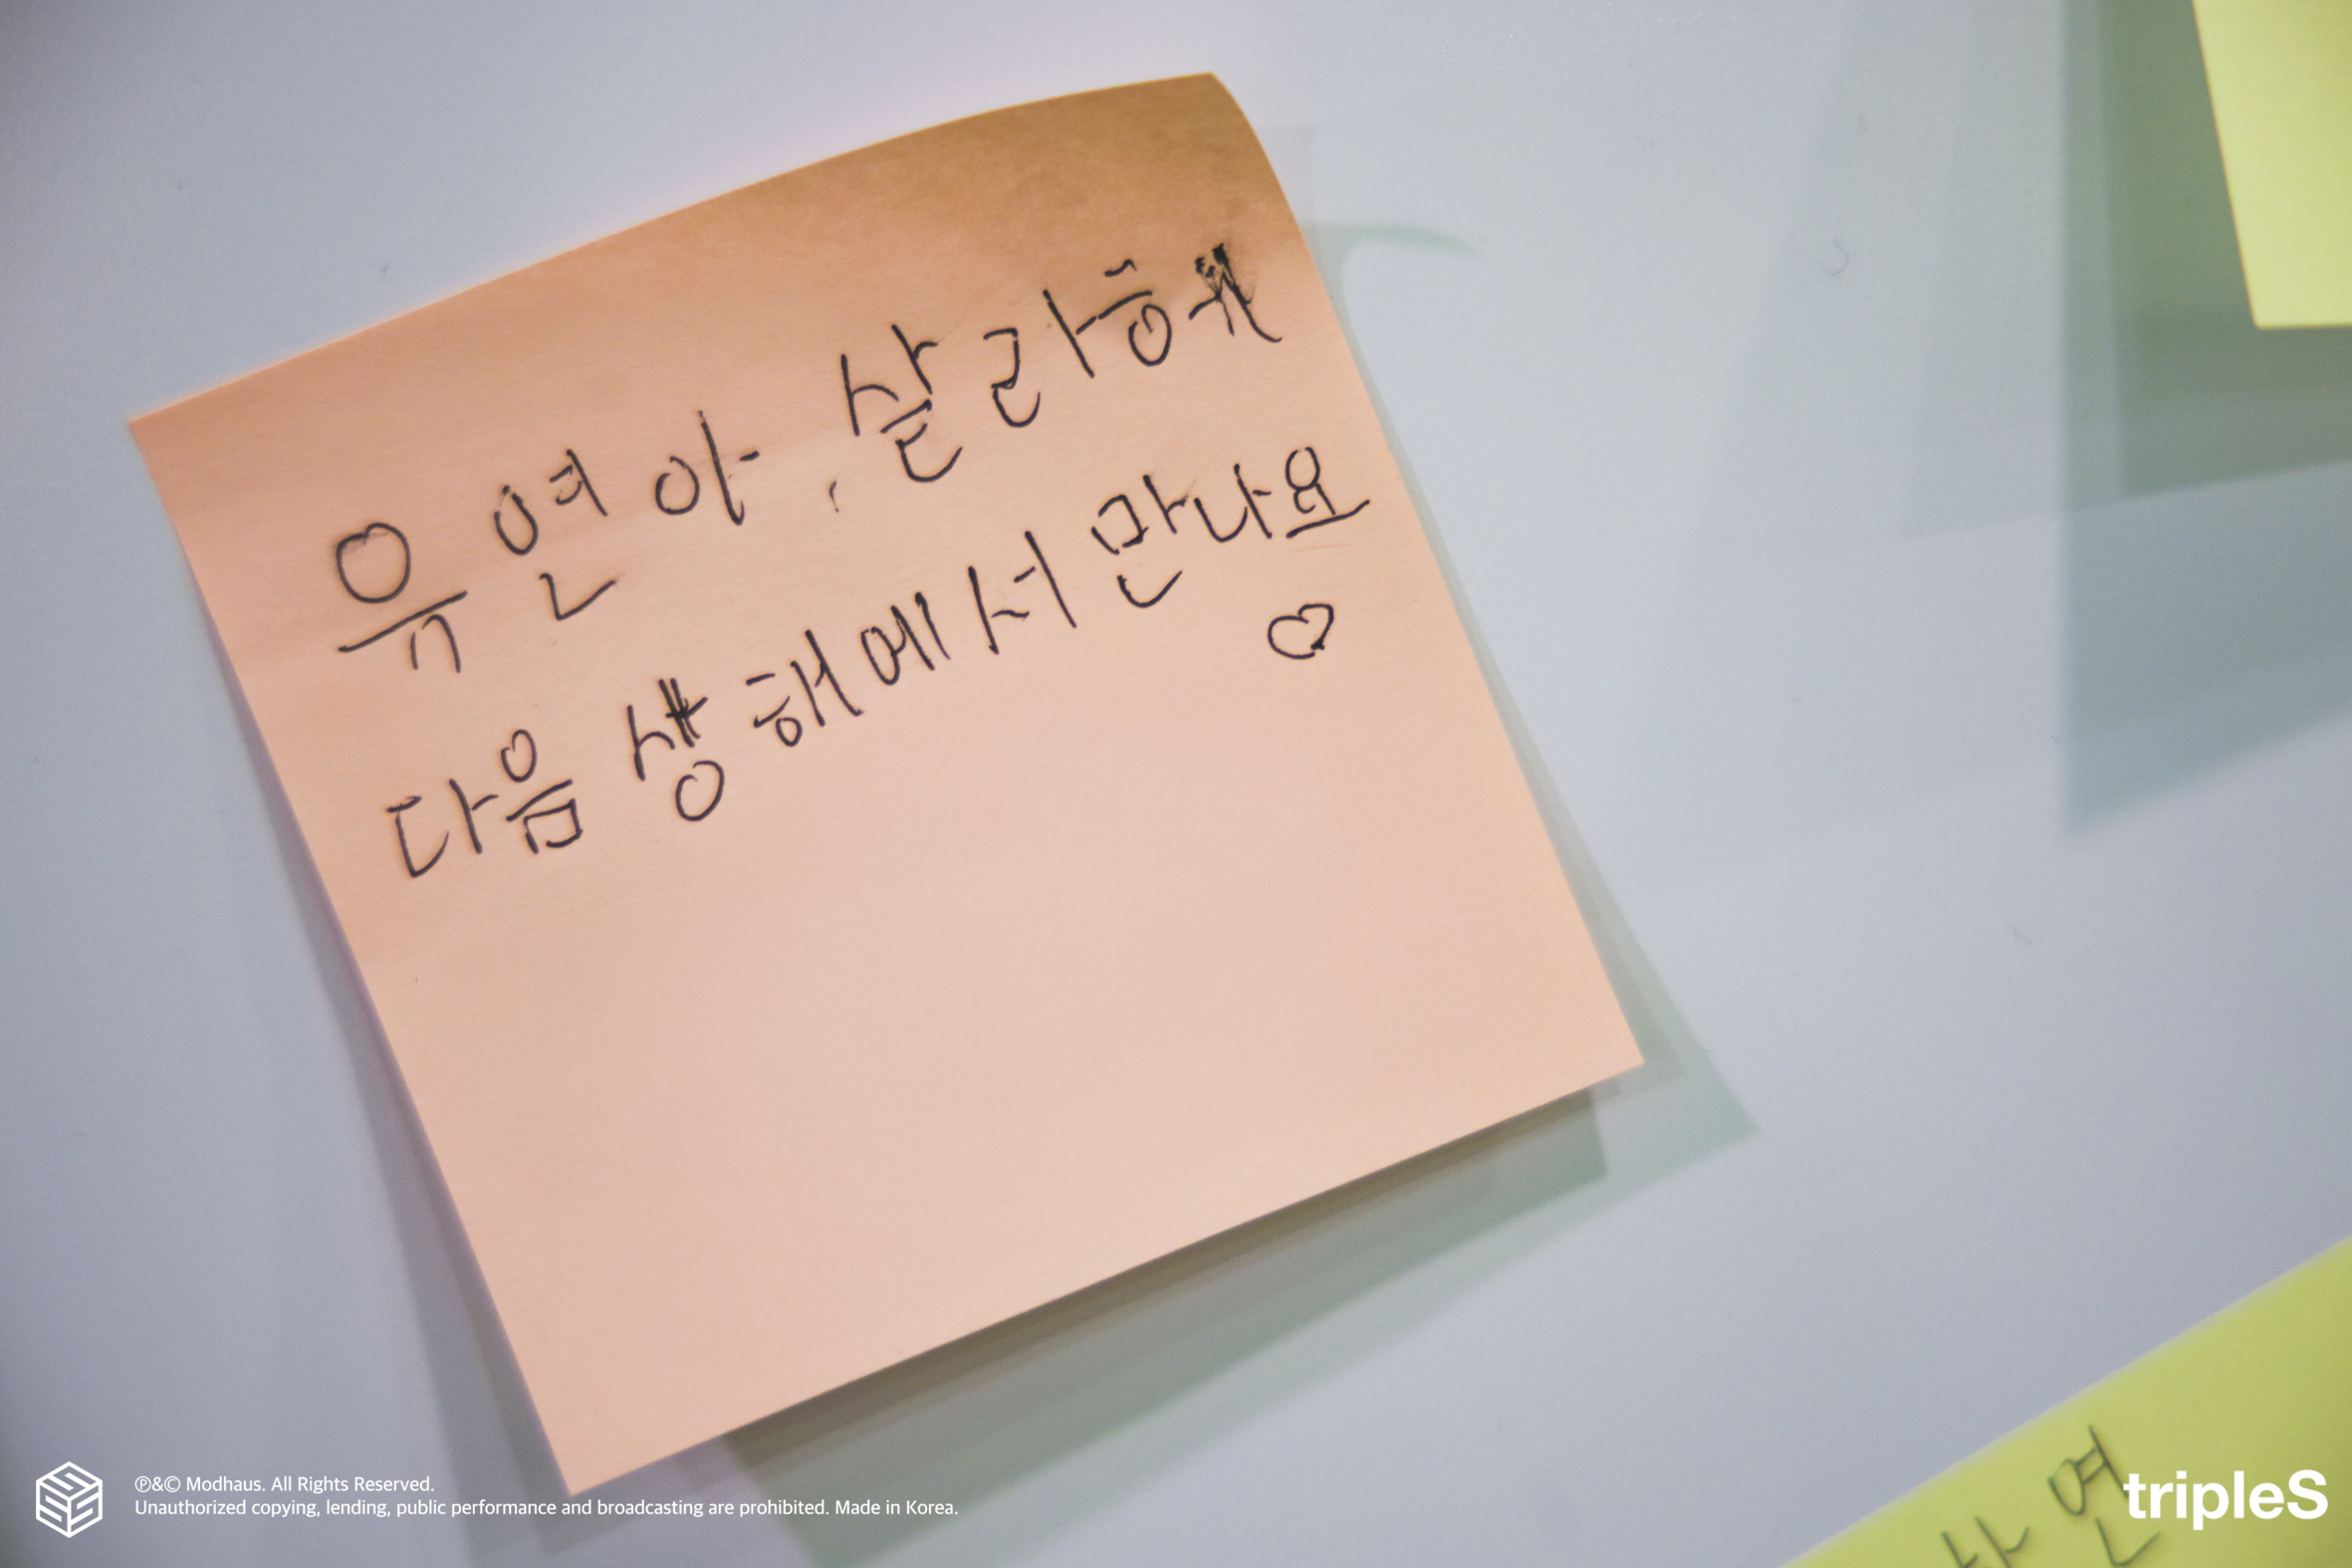 유연아, 살라해
다음 생해에서 만나요
♡
연
℗&© Modhaus. All Rights Reserved.
Unauthorized copying, lending, public performance and broadcasting are prohibited. Made in Korea.
tripleS